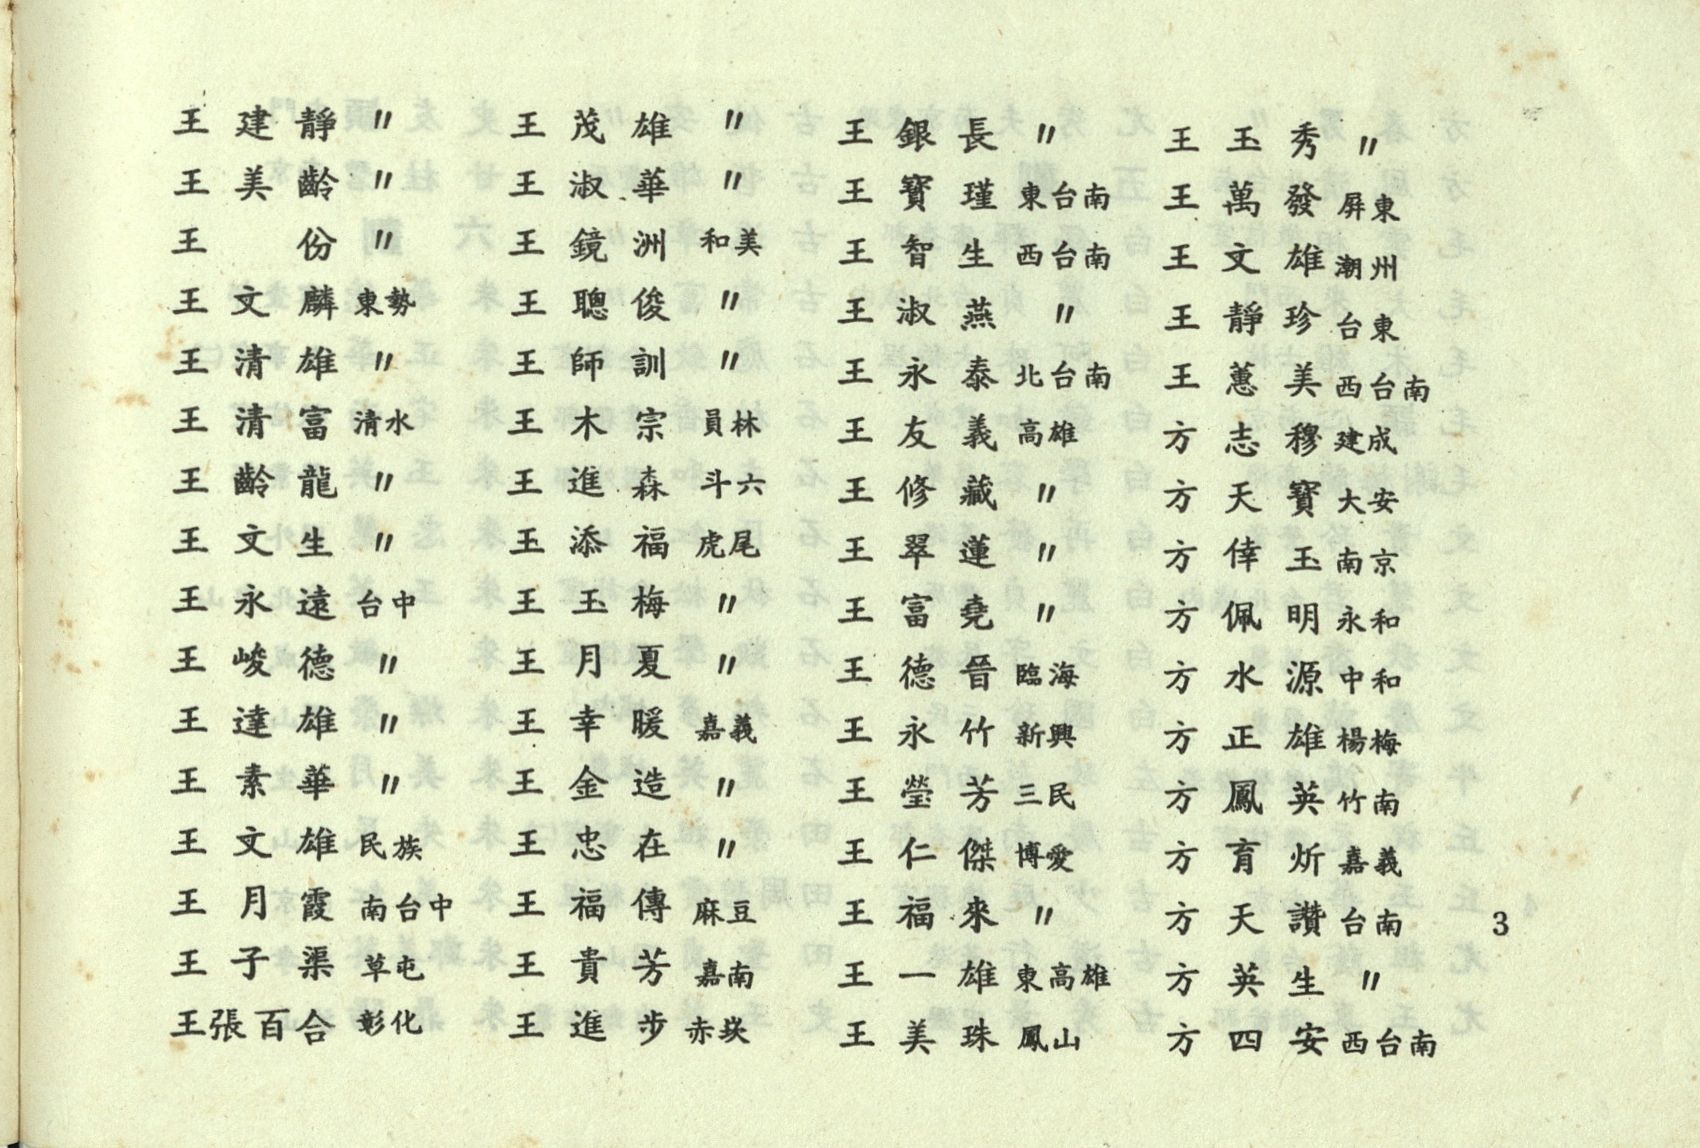 王建靜 〃
王美齡 〃
王　份 〃
王文麟 東勢
王清雄 〃
王清富 清水
王齡龍 〃
王文生 〃
王永遠 台中
王峻德 〃
王達雄 〃
王素華 〃
王文雄 民族
王月霞 南台中
王子渠 草屯
王張百合 彰化
王茂雄 〃
王淑華 〃
王鏡洲 和美
王聰俊 〃
王師訓 〃
王木宗 員林
王進森 斗六
王添福 虎尾
王玉梅 〃
王月夏 〃
王幸暖 嘉義
王金造 〃
王忠在 〃
王福傳 麻豆
王貴芳 嘉南
王進步 赤崁
王銀長 〃
王寶瑾 東台南
王智生 西台南
王淑燕 〃
王永泰 北台南
王友義 高雄
王修藏 〃
王翠蓮 〃
王富堯 〃
王德晉 臨海
王永竹 新興
王瑩芳 三民
王仁傑 博愛
王福來 〃
王一雄 東高雄
王美珠 鳳山
王玉秀 〃
王萬發 屏東
王文雄 潮州
王靜珍 台東
王蕙美 西台南
方志穆 建成
方天寶 大安
方倖玉 南京
方佩明 永和
方水源 中和
方正雄 楊梅
方鳳英 竹南
方育炘 嘉義
方天讚 台南
方英生 〃
方四安 西台南
3